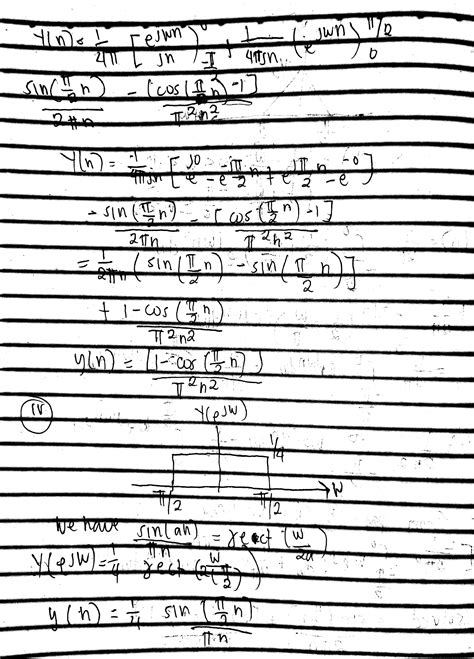 y(n) = 1/4π [e^jωn / jn]^0_-π/2 + 1/4πjn (e^jωn)^π/2_0
sin(π/2 n) / 2πn - [cos(π/2 n) - 1] / π²n²
y(n) = 1/4πjn [e^j0 - e^-jπ/2 n + e^jπ/2 n - e^-0]
- sin(π/2 n) / 2πn - [cos(π/2 n) - 1] / π²n²
= 1/2πn (sin(π/2 n) - sin(π/2 n)]
+ 1 - cos(π/2 n) / π²n²
y(n) = [1 - cos(π/2 n)] / π²n²
IV
Y(e^jω)
1/4
π/2 π/2 ω
We have sin(an) / πn = rect(ω/2a)
Y(e^jω) = 1/4 rect(ω / 2(π/2))
y(n) = 1/4 sin(π/2 n) / πn